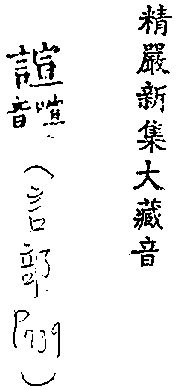 精嚴新集大藏音
諠音
（言部P.739）